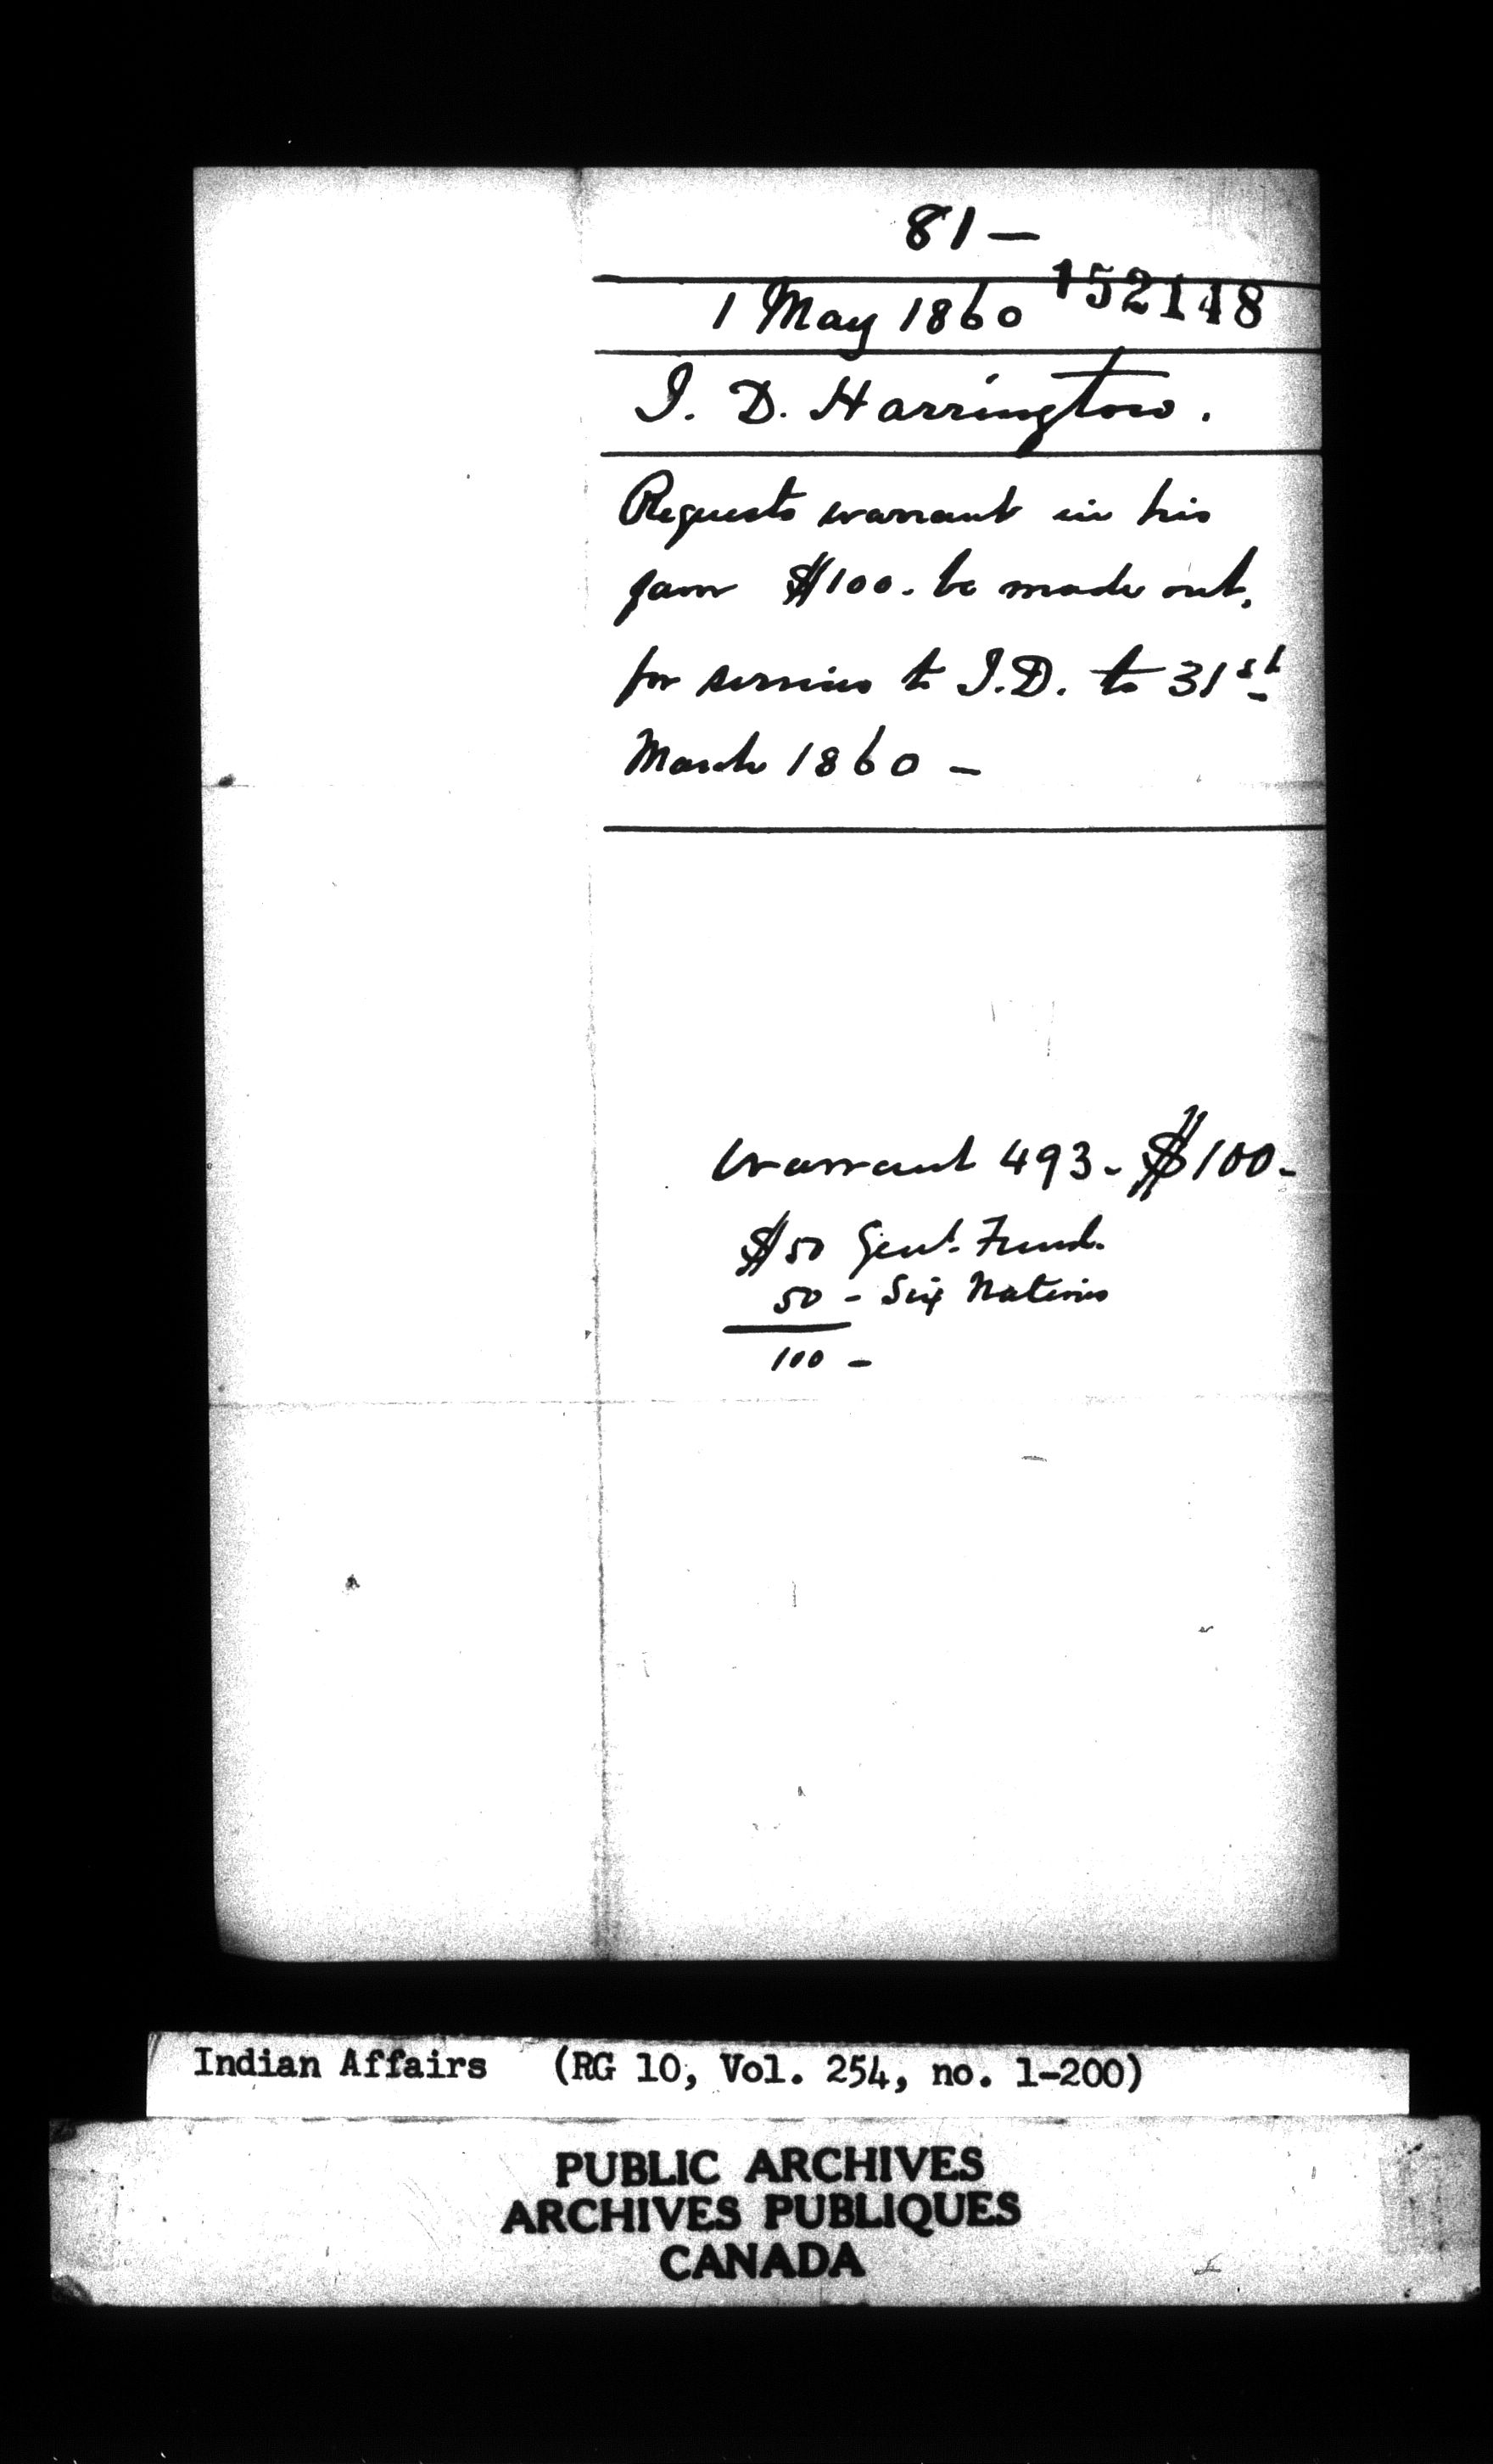 81 —
1 May 1860 152148
I. D. Harrington.
Requests warrant in his
favor $100. be made out,
for services to I.D. to 31st
March 1860 —
Warrant 493 - $100 -
$50 Genl. Fund.
50 - Six Nations
100 -
Indian Affairs (RG 10, Vol. 254, no. 1-200)
PUBLIC ARCHIVES
ARCHIVES PUBLIQUES
CANADA